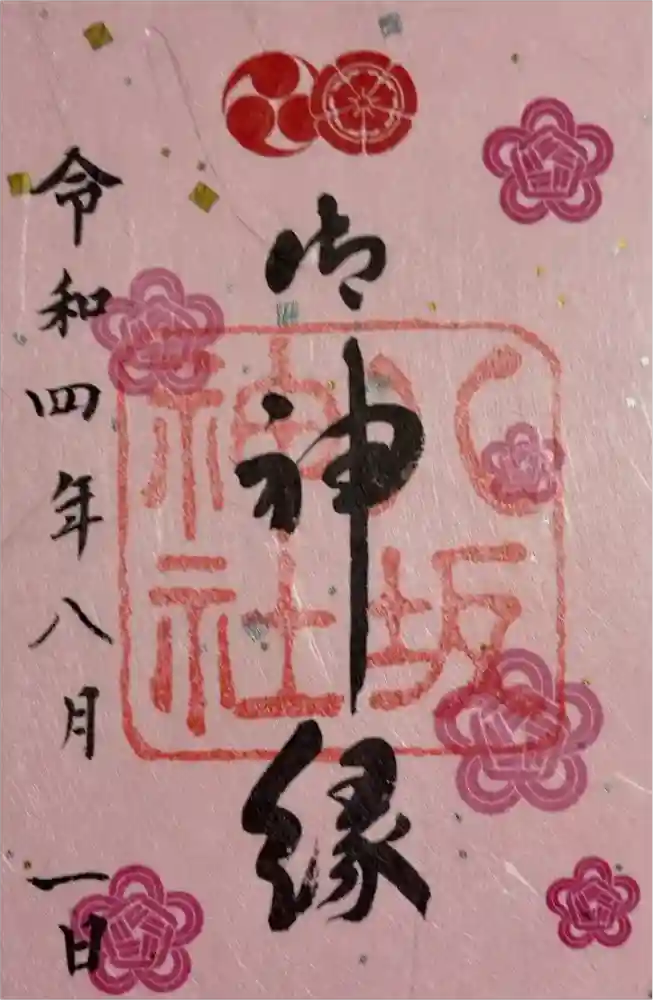 御神縁
八坂
神社
令和四年八月一日